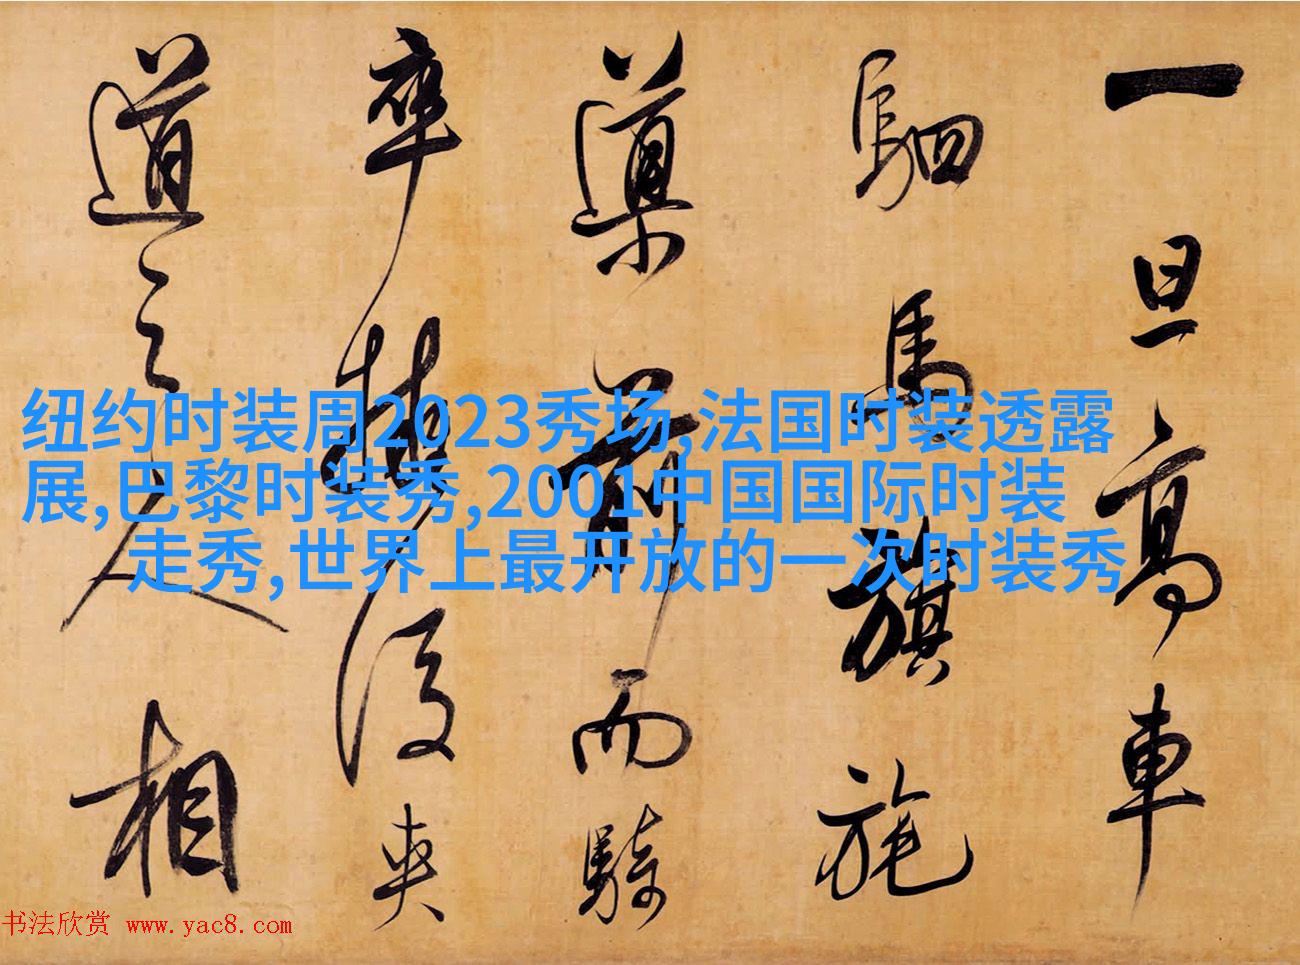 一旦高車
駟馬旗旄
導前而騎
卒擁後夾
道之人相
纽约时装周2023秀场,法国时装透露
展,巴黎时装秀,2001中国国际时装
走秀,世界上最开放的一次时装秀
书法欣赏 www.yac8.com